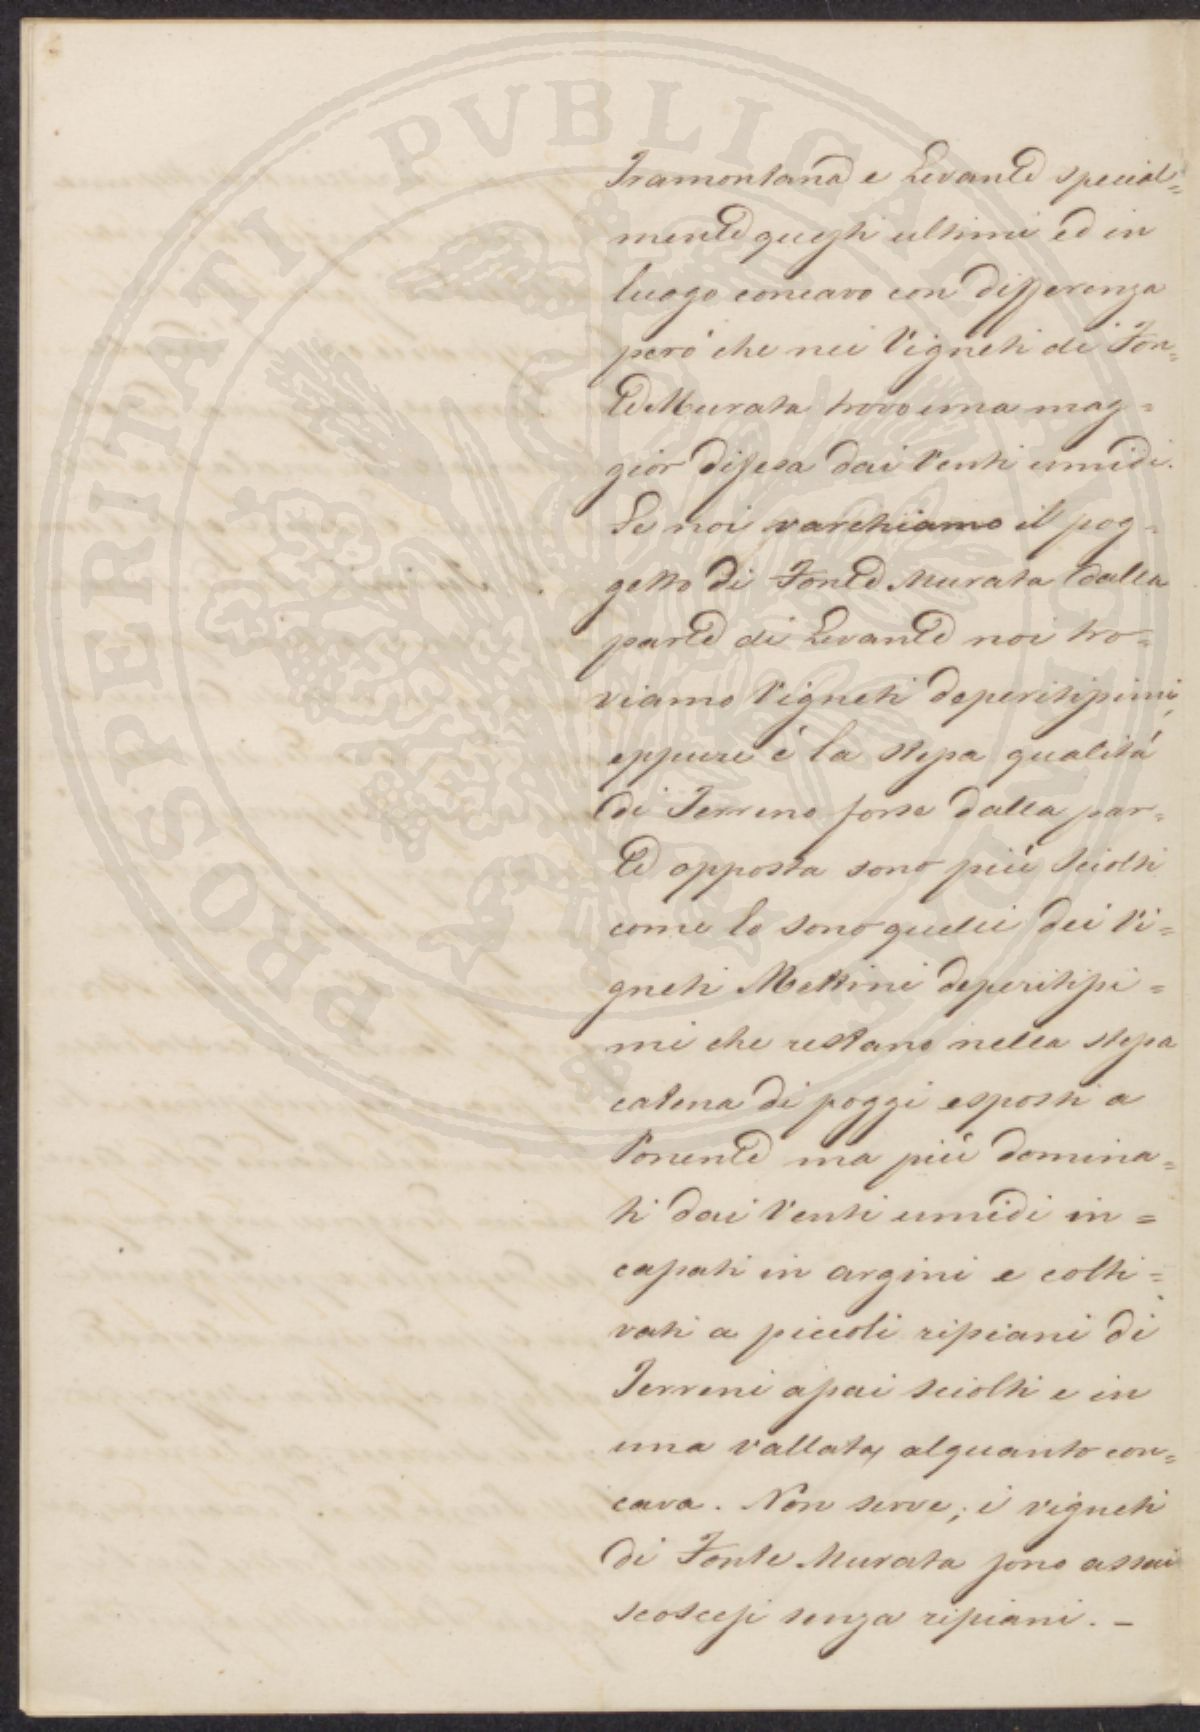 Tramontana e Levante special=
mente questi ultimi ed in
luogo concavo con differenza
però che nei Vigneti di Fon=
te Murata trovo una mag=
gior difesa dai Venti umidi.
Se noi varchiamo il pog=
getto di Fonte Murata dalla
parte di Levante noi tro=
viamo Vigneti deperitissimi,
eppure è la stessa qualità
di Terreno forse dalla par=
te opposta sono più sciolti
come lo sono quelli dei Vi=
gneti Mettini deperitissi=
mi che restano nella stessa
catena di poggi esposti a
Ponente ma più domina=
ti dai Venti umidi in=
cassati in argini e colti=
vati a piccoli ripiani di
Terreni assai sciolti e in
una vallata, alquanto con=
cava. Non serve; i vigneti
di Fonte Murata sono assai
scoscesi senza ripiani. –
PROSPERITATI PVBLICAE AVGENDAE